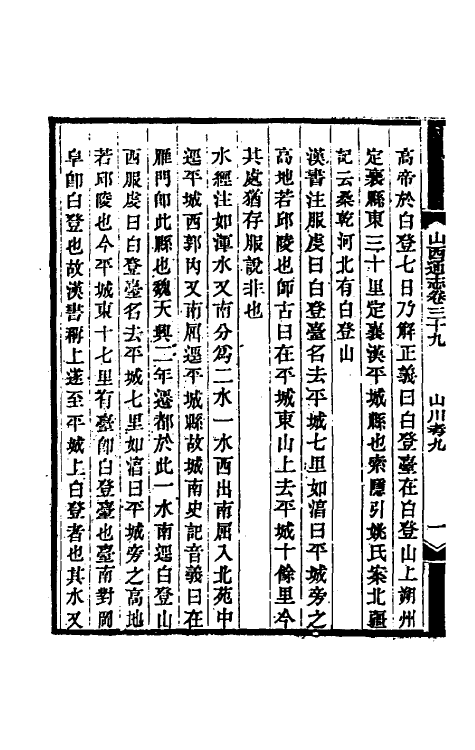 山西通志卷三十九 山川考九 一
高帝於白登七日乃解正義曰白登臺在白登山上朔州
定襄縣東三十里定襄漢平城縣也索隱引姚氏案北疆
記云桑乾河北有白登山
漢書注服虔曰白登臺名去平城七里如淯曰平城旁之
高地若邱陵也師古曰在平城東山上去平城十餘里今
其處猶存服說非也
水經注如渾水又南分爲二水一水西出南屈入北苑中
逕平城西郭內又南屈逕平城縣故城南史記音義曰在
雁門卽此縣也魏天興二年遷都於此一水南逕白登山
西服虔曰白登臺名去平城七里如淯曰平城旁之高地
若邱陵也今平城東十七里有臺卽白登臺也臺南對岡
阜卽白登也故漢書稱上遂至平城上白登者也其水又